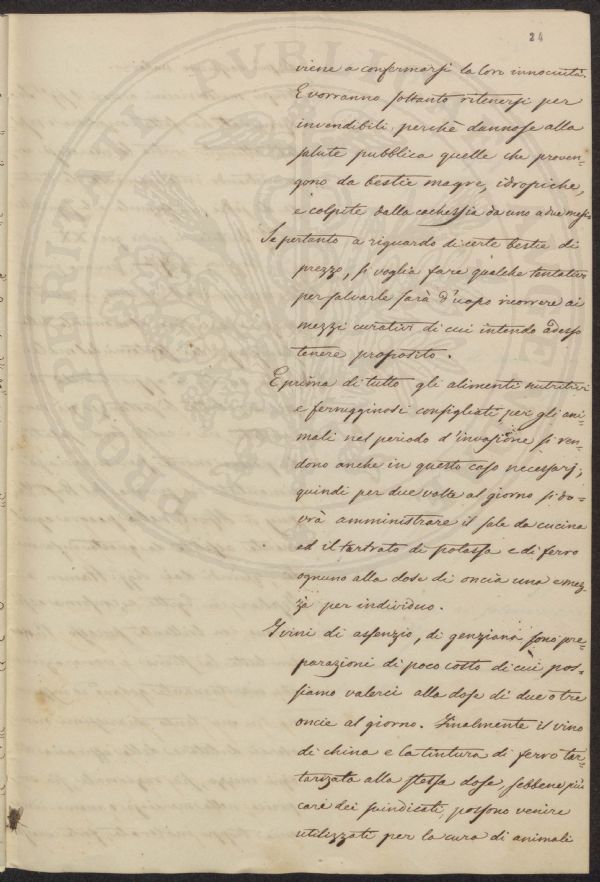 24
viene a confermarsi la loro innocuità.
E vorranno soltanto ritenersi per
invendibili, perchè dannose alla
salute pubblica quelle che proven-
gono da bestie magre, idropiche,
e colpite dalla cachessia da uno a due mesi.
Se pertanto a riguardo di certe bestie di
prezzo, si voglia fare qualche tentativo
per salvarle sarà d'uopo ricorrere ai
mezzi curativi di cui intendo adesso
tenere proposito.
E prima di tutto gli alimenti nutritivi
e ferrugginosi consigliati per gli ani-
mali nel periodo d'invasione si ren-
dono anche in questo caso necessarj;
quindi per due volte al giorno si do-
vrà amministrare il sale da cucina
ed il tartrato di potassa e di ferro
ognuno alla dose di oncia una e mez-
za per individuo.
I vini di assenzio, di genziana, sono pre-
parazioni di poco costo di cui pos-
siamo valerci alla dose di due o tre
oncie al giorno. Finalmente il vino
di china e la tintura di ferro tar-
tarizata alla stessa dose, sebbene più
care dei suindicati, possono venire
utilizzati per la cura di animali
PROSPERITATI PVBLICAE